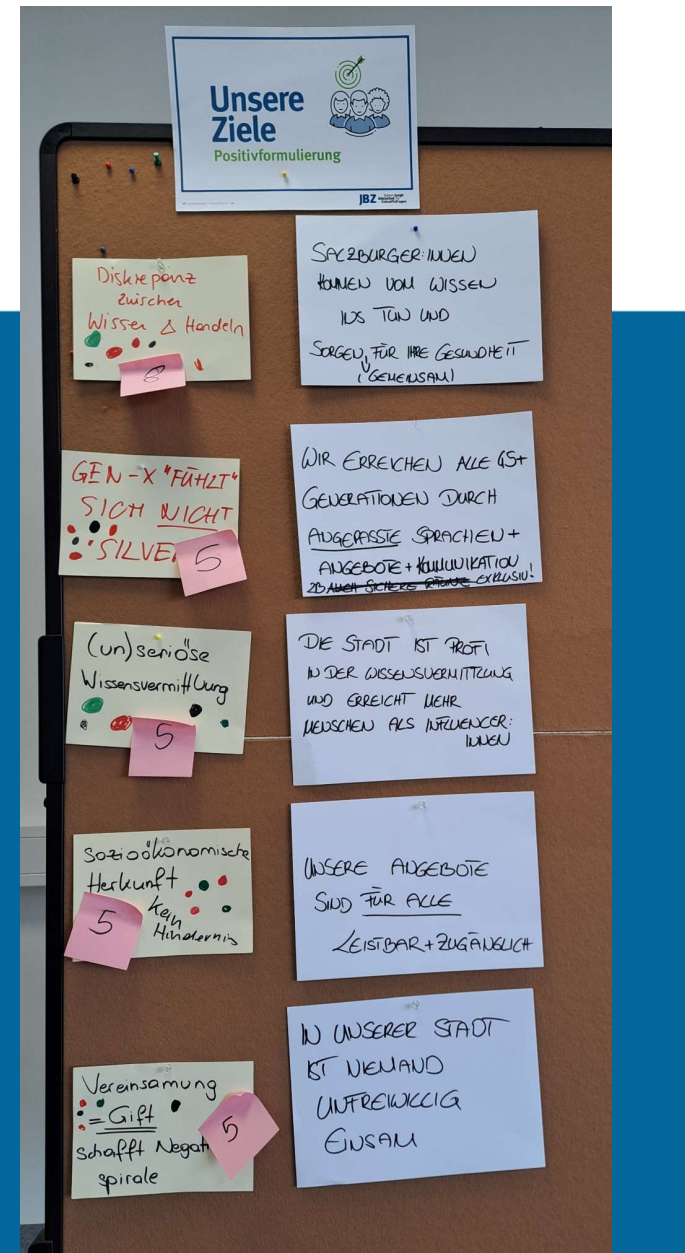 Unsere
Ziele
Positivformulierung
JBZ
Diskrepanz
zwischen
Wissen & Handeln
SALZBURGER:INNEN
KOMMEN VOM WISSEN
INS TUN UND
SORGEN FÜR IHRE GESUNDHEIT
(GEMEINSAM)
GEN-X "FÜHLT"
SICH NICHT
"SILVE
5
WIR ERREICHEN ALLE 45+
GENERATIONEN DURCH
ANGEPASSTE SPRACHEN +
ANGEBOTE + KOMMUNIKATION
ZB AUCH SICHERE RÄUME EXKLUSIV!
(un)seriöse
Wissensvermittlung
5
DIE STADT IST PROFI
IN DER WISSENSVERMITTLUNG
UND ERREICHT MEHR
MENSCHEN ALS INFLUENCER:
INNEN
Sozioökonomische
Herkunft
kein
Hindernis
5
UNSERE ANGEBOTE
SIND FÜR ALLE
LEISTBAR + ZUGÄNGLICH
Vereinsamung
= Gift
schafft Negati
spirale
5
IN UNSERER STADT
IST NIEMAND
UNFREIWILLIG
EINSAM